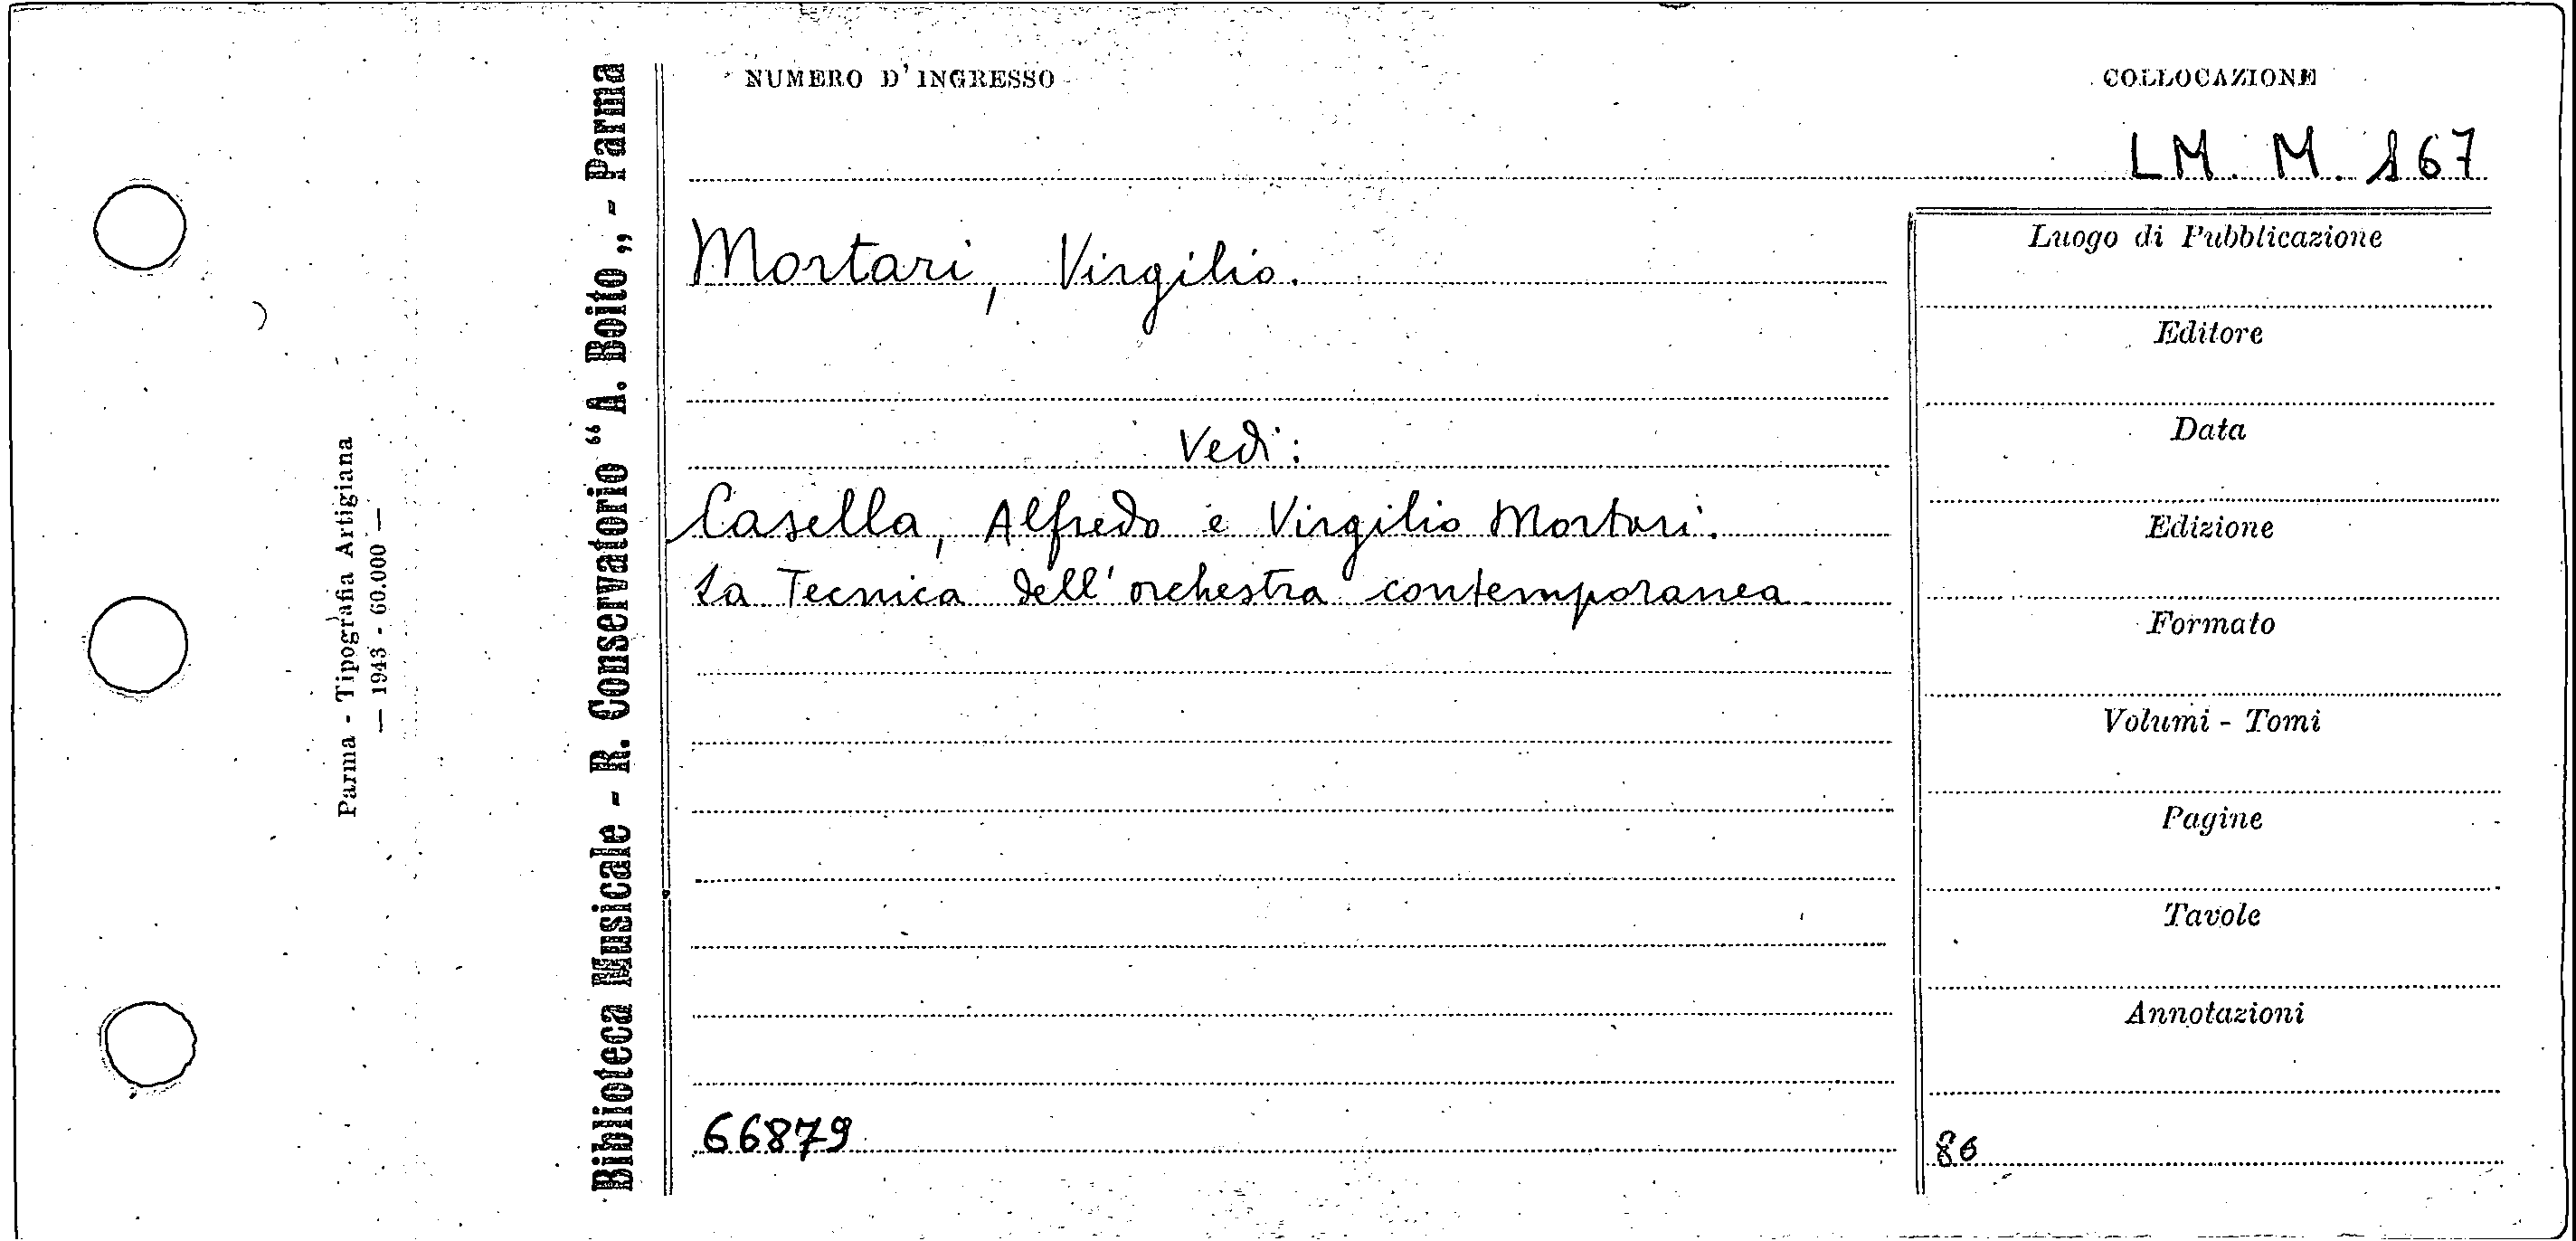 NUMERO D'INGRESSO
COLLOCAZIONE
LM. M. 167
Mortari, Virgilio.
Vedi:
Casella, Alfredo e Virgilio Mortari.
La Tecnica dell'orchestra contemporanea
66879
Luogo di Pubblicazione
Editore
Data
Edizione
Formato
Volumi - Tomi
Pagine
Tavole
Annotazioni
86
Biblioteca Musicale - R. Conservatorio “A. Boito„ - Parma
Parma - Tipografia Artigiana
— 1943 - 60.000 —